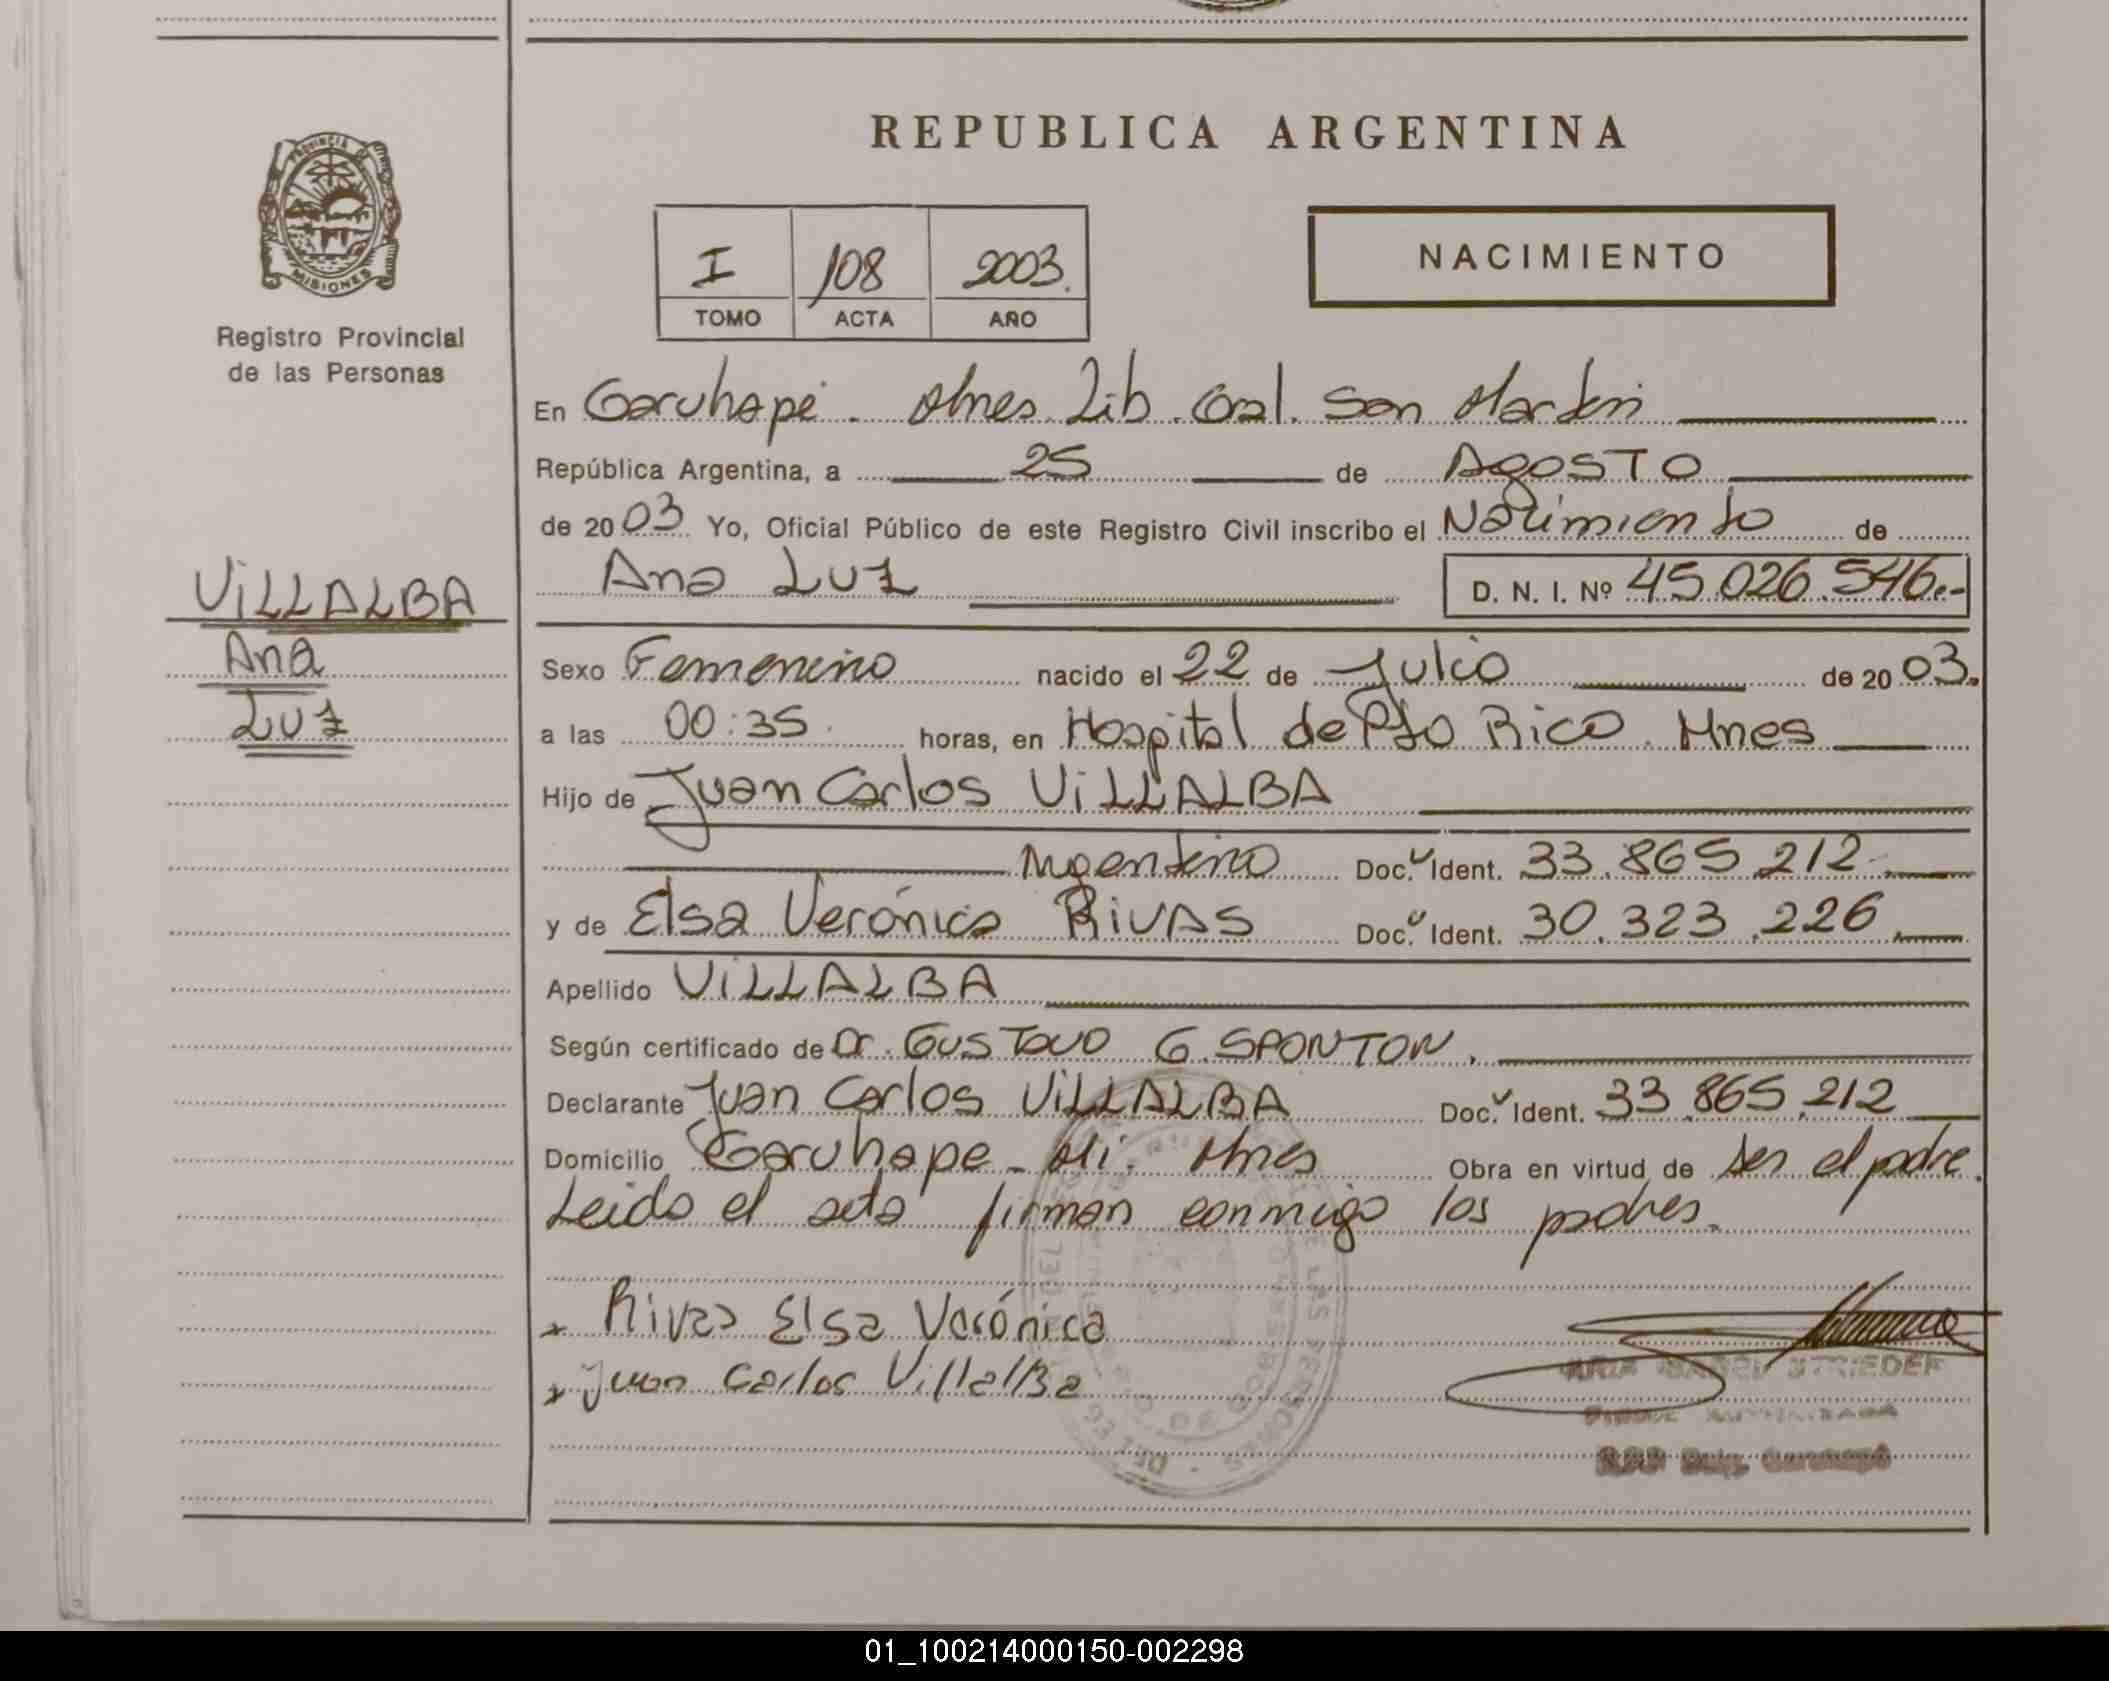 REPUBLICA ARGENTINA
PROVINCIA DE
MISIONES
Registro Provincial
de las Personas
I 108 2003.
TOMO ACTA AÑO
NACIMIENTO
En Garuhapé. Mnes. Lib. Gral. San Martín
República Argentina, a 25 de Agosto
de 2003. Yo, Oficial Público de este Registro Civil inscribo el Nacimiento de
Ana Luz D. N. I. Nº 45.026.546.-
VILLALBA
Ana
Luz
Sexo Femenino nacido el 22 de Julio de 2003.
a las 00:35. horas, en Hospital de Pto Rico. Mnes
Hijo de Juan Carlos VILLALBA
Argentino Doc. Ident. 33.865.212.
y de Elsa Verónica RIVAS Doc. Ident. 30.323.226.
Apellido VILLALBA
Según certificado de Dr. GUSTAVO G. SPONTON.
Declarante Juan Carlos VILLALBA Doc. Ident. 33.865.212
Domicilio Garuhape - Mi. Mnes Obra en virtud de ser el padre.
Leido el acta firman conmigo los padres.
x Rivas Elsa Verónica
x Juan Carlos VillalBa
STRIEDER
01_100214000150-002298